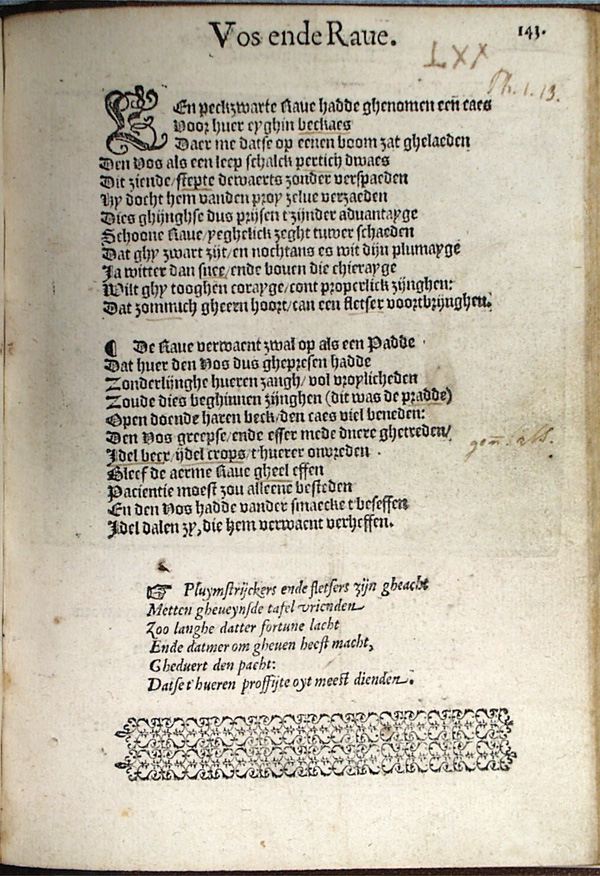 Vos ende Raue.
143.
LXX
Ph. 1. 13.
EEn peckzwarte Raue hadde ghenomen een caes
Voor huer eyghin beckaes
Daer me datse op eenen boom zat ghelaeden
Den Vos als een leep schalck pertich dwaes
Dit ziende/stepte dewaerts zonder verspaeden
Hy docht hem vanden proy zelue verzaeden
Dies ghijnghse dus prijsen t'zijnder aduantayge
Schoone Raue/yeghelick zeght tuwer schaeden
Dat ghy zwart zijt/en nochtans es wit dijn plumayge
Ja witter dan snee/ende bouen die chierayge
Wilt ghy tooghen corayge/cont properlick zijnghen:
Dat zommich gheern hoort/can een fletser voortbrijnghen.
¶ De Raue verwaent zwal op als een Padde
Dat huer den Vos dus ghepresen hadde
Zonderlijnghe hueren zangh/vol vroylicheden
Zoude dies beghinnen zijnghen (dit was de pradde)
Open doende haren beck/den caes viel beneden:
Den Vos greepse/ende effer mede duere ghetreden/
Jdel beex/ijdel crops/t'huerer onvreden
Bleef de aerme Raue gheel effen
Pacientie moest zou alleene besteden
En den Vos hadde vander smaecke t'beseffen
Jdel dalen zy, die hem verwaent verheffen.
☞ Pluymstrijckers ende fletsers zijn gheacht
Metten gheueynsde tafel vrienden
Zoo langhe datter fortune lacht
Ende datmer om gheuen heeft macht,
Gheduert den pacht:
Datse t'hueren proffijte oyt meest dienden.